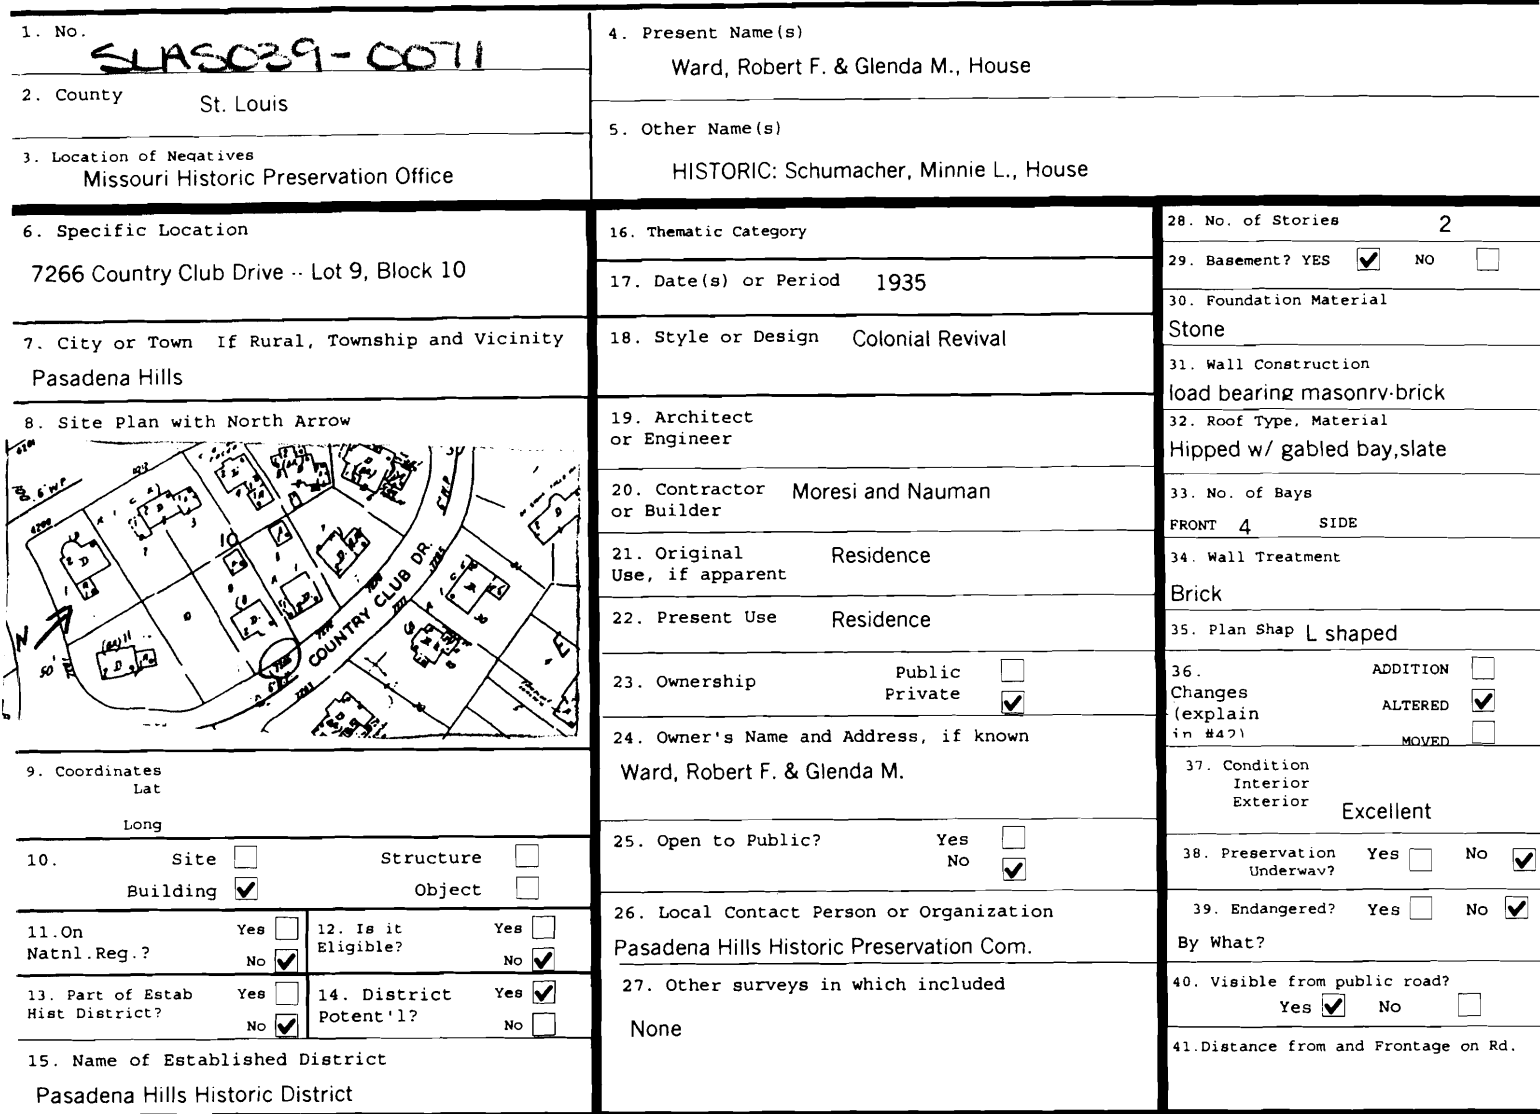 1. No.
SLAS039-0071
2. County
St. Louis
3. Location of Negatives
Missouri Historic Preservation Office
4. Present Name(s)
Ward, Robert F. & Glenda M., House
5. Other Name(s)
HISTORIC: Schumacher, Minnie L., House
6. Specific Location
7266 Country Club Drive -- Lot 9, Block 10
7. City or Town If Rural, Township and Vicinity
Pasadena Hills
8. Site Plan with North Arrow
10
N
50'
COUNTRY CLUB DR.
9. Coordinates
Lat
Long
10. Site Structure
Building ✔ Object
11.On Yes
Natnl.Reg.? No ✔
12. Is it Yes
Eligible? No ✔
13. Part of Estab Yes
Hist District? No ✔
14. District Yes ✔
Potent'l? No
15. Name of Established District
Pasadena Hills Historic District
16. Thematic Category
17. Date(s) or Period 1935
18. Style or Design Colonial Revival
19. Architect
or Engineer
20. Contractor Moresi and Nauman
or Builder
21. Original Residence
Use, if apparent
22. Present Use Residence
23. Ownership Public
Private ✔
24. Owner's Name and Address, if known
Ward, Robert F. & Glenda M.
25. Open to Public? Yes
No ✔
26. Local Contact Person or Organization
Pasadena Hills Historic Preservation Com.
27. Other surveys in which included
None
28. No. of Stories 2
29. Basement? YES ✔ NO
30. Foundation Material
Stone
31. Wall Construction
load bearing masonry-brick
32. Roof Type, Material
Hipped w/ gabled bay,slate
33. No. of Bays
FRONT 4 SIDE
34. Wall Treatment
Brick
35. Plan Shap L shaped
36. ADDITION
Changes
(explain ALTERED ✔
in #42) MOVED
37. Condition
Interior
Exterior Excellent
38. Preservation Yes No ✔
Underway?
39. Endangered? Yes No ✔
By What?
40. Visible from public road?
Yes ✔ No
41.Distance from and Frontage on Rd.